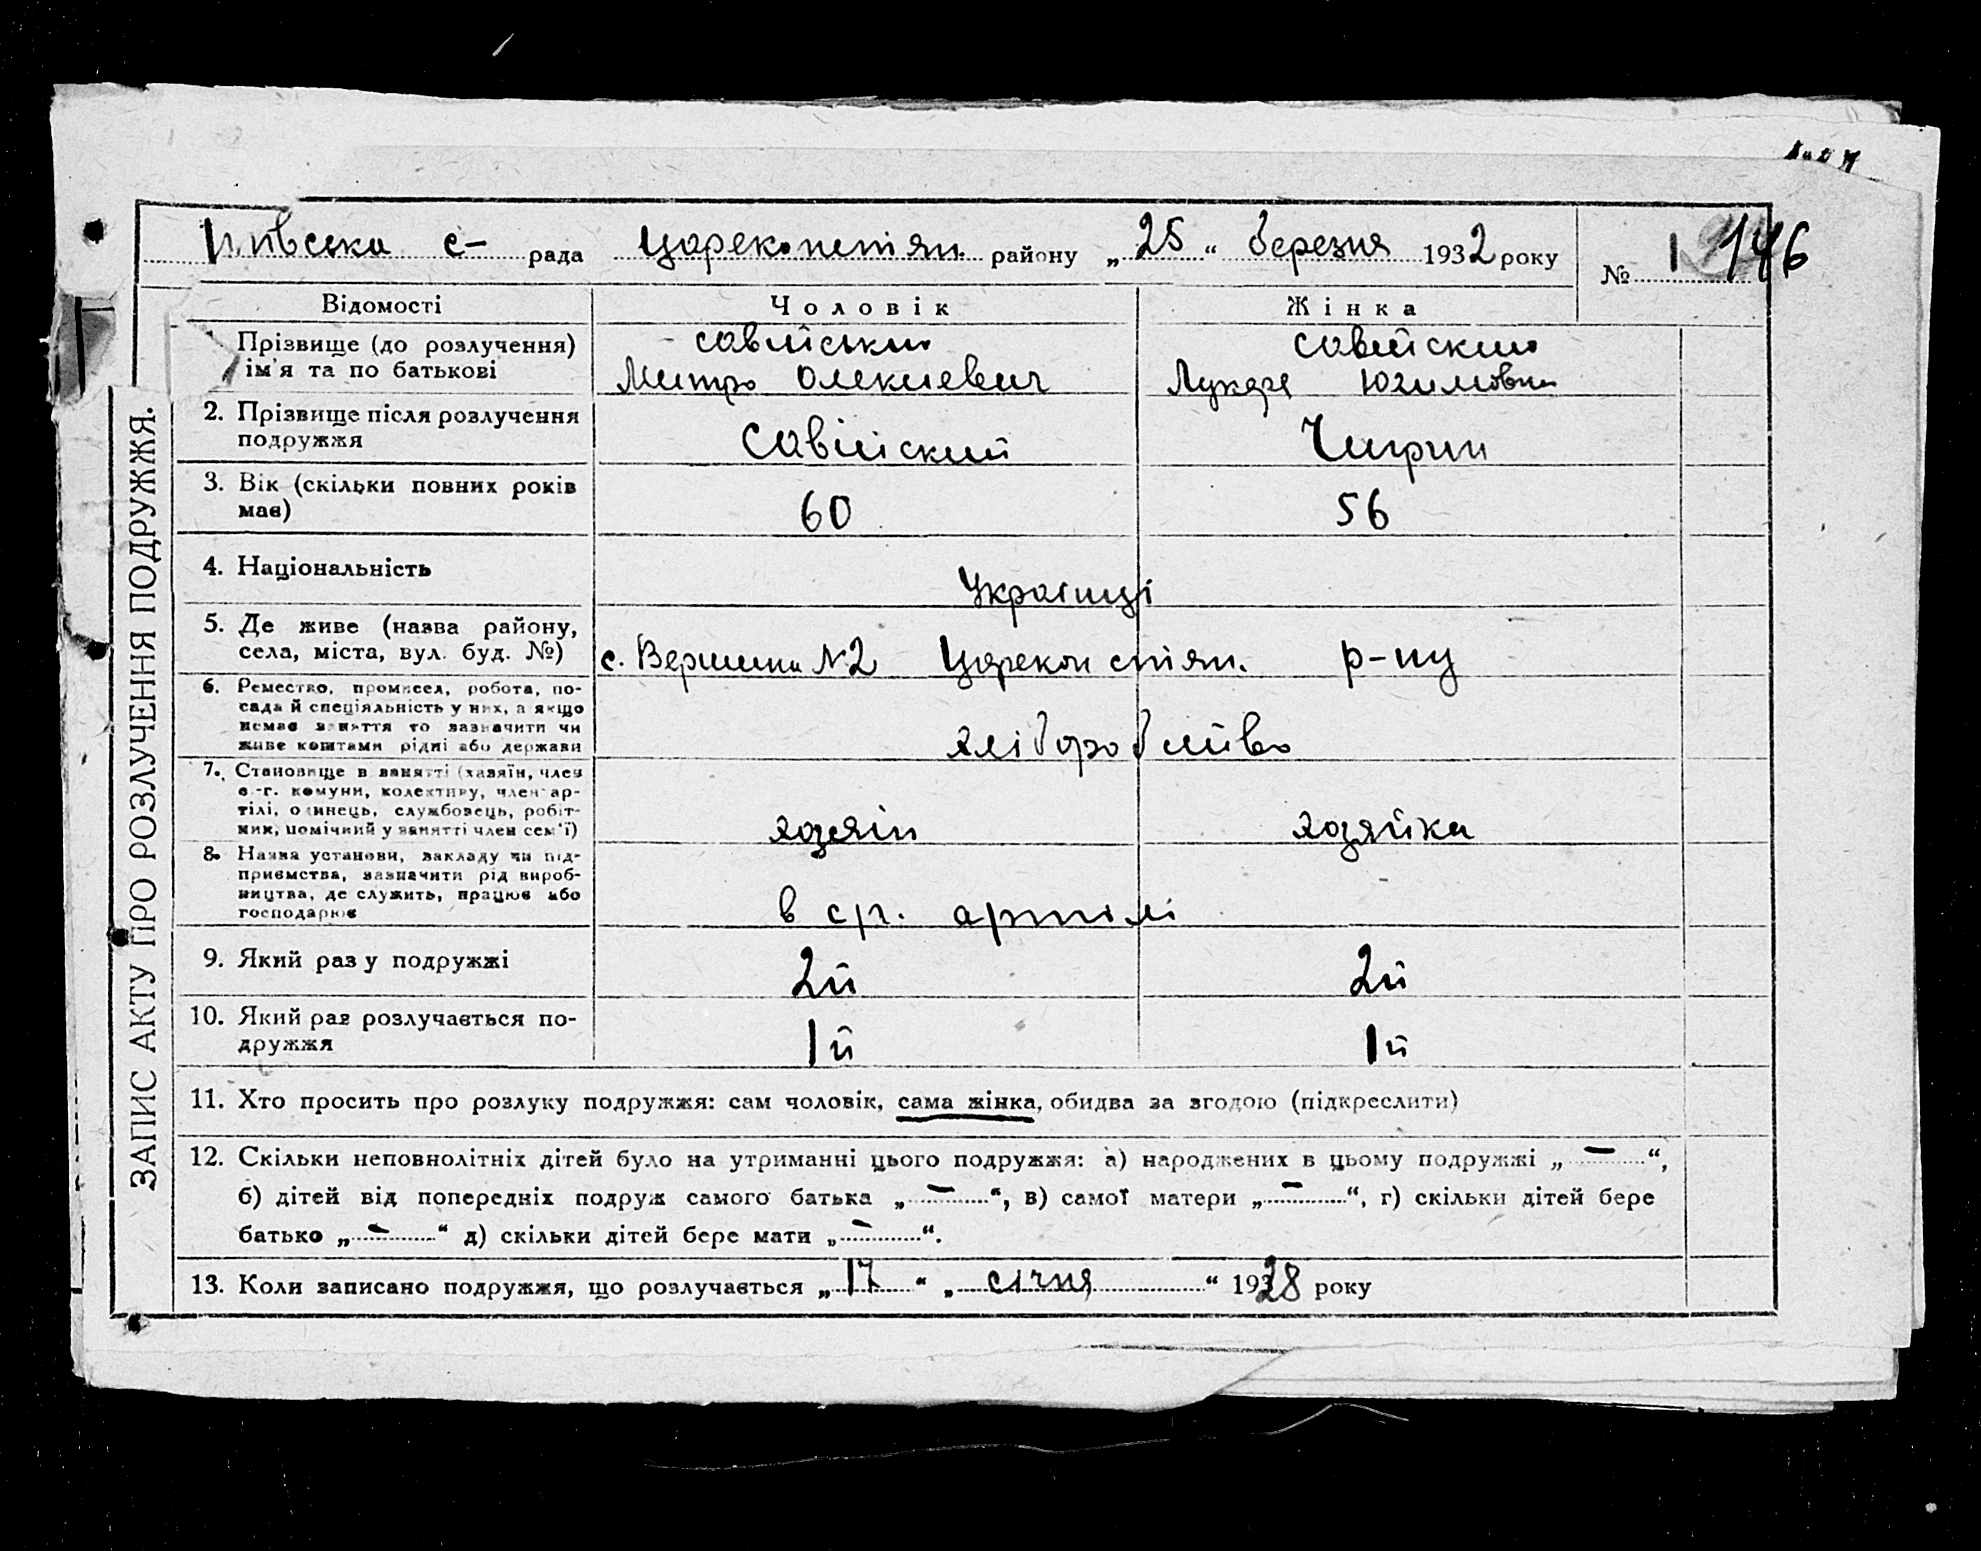 с- рада Царекопстян. району „25“ березня 1932 року № 1 146
ЗАПИС АКТУ ПРО РОЗЛУЧЕННЯ ПОДРУЖЖЯ.
Відомості Чоловік Жінка
Прізвище (до розлучення) ім'я та по батькові
Савійський
Митро Олексієвич
Савійским
Юхимовна
2. Прізвище після розлучення подружжя Савійский Чигрин
3. Вік (скільки повних років має) 60 56
4. Національність Українці
5. Де живе (назва району, села, міста, вул. буд. №) с. Вершини №2 Царекон стян. р-ну
6. Ремество, промисел, робота, по-
сада й спеціяльність у них, а якщо
немає заняття то зазначити чи
живе коштами рідні або держави
хліборобство
7. Становище в занятті (хазяїн, член
с.-г. комуни, колективу, член ар-
тілі, одинець, службовець, робіт-
ник, помічний у занятті член сем'ї)
хозяїн хозяйка
8. Назва установи, закладу чи під-
приємства, зазначити рід вироб-
ництва, де служить, працює або
господарює
в с/г. артілі
9. Який раз у подружжі 2й 2й
10. Який раз розлучається по-
дружжя 1й 1й
11. Хто просить про розлуку подружжя: сам чоловік, сама жінка, обидва за згодою (підкреслити)
12. Скільки неповнолітніх дітей було на утриманні цього подружжя: а) народжених в цьому подружжі „—“,
б) дітей від попередніх подруж самого батька „—“, в) самої матери „—“, г) скільки дітей бере
батько „—“ д) скільки дітей бере мати „—“.
13. Коли записано подружжя, що розлучається „17“ „січня“ 1928 року